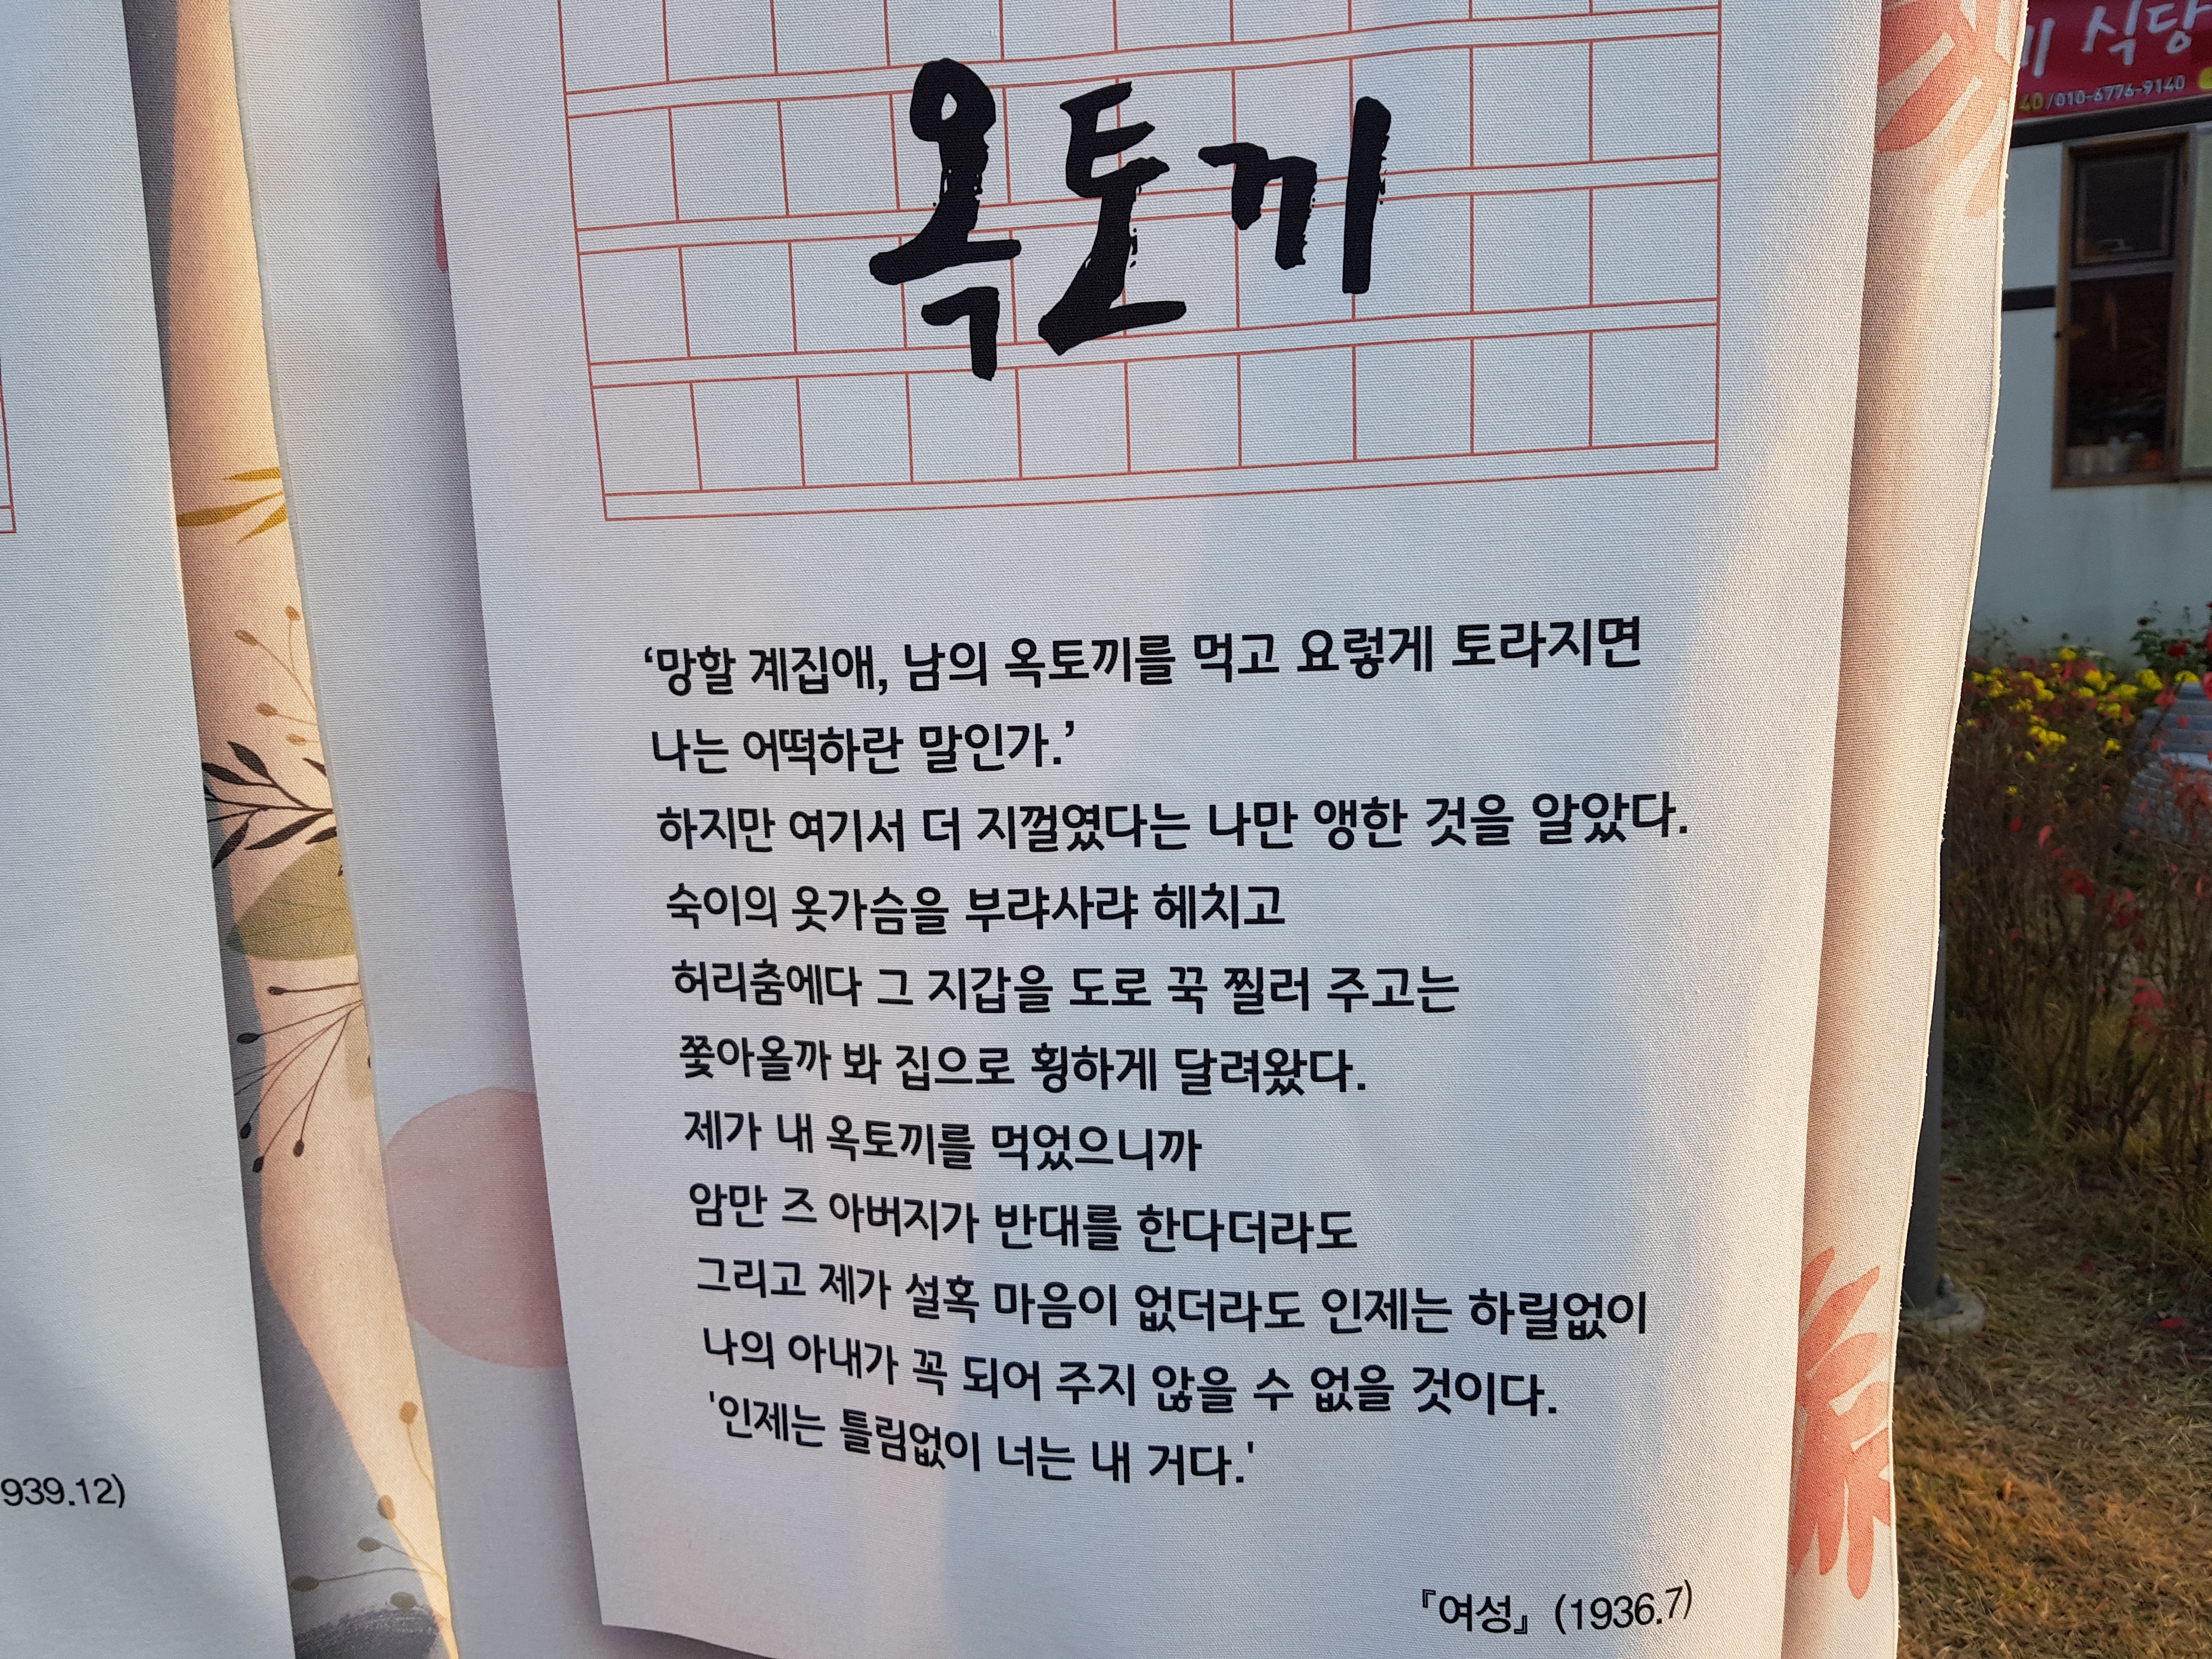 식당
40/010-6776-9140
옥토끼
‘망할 계집애, 남의 옥토끼를 먹고 요렇게 토라지면
나는 어떡하란 말인가.’
하지만 여기서 더 지껄였다는 나만 앵한 것을 알았다.
숙이의 옷가슴을 부랴사랴 헤치고
허리춤에다 그 지갑을 도로 꾹 찔러 주고는
쫓아올까 봐 집으로 횡하게 달려왔다.
제가 내 옥토끼를 먹었으니까
암만 즈 아버지가 반대를 한다더라도
그리고 제가 설혹 마음이 없더라도 인제는 하릴없이
나의 아내가 꼭 되어 주지 않을 수 없을 것이다.
'인제는 틀림없이 너는 내 거다.'
『여성』 (1936.7)
939.12)